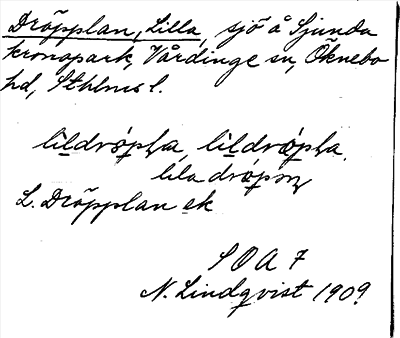 Dröpplan, Lilla, sjö å Sjunda
kronopark, Vårdinge sn, Öknebo
hd, Sthlms l.
lildrópḷa, lìldrópḷa,
lila drópən
L. Dröpplan ek
S O A 7
N. Lindqvist 1909